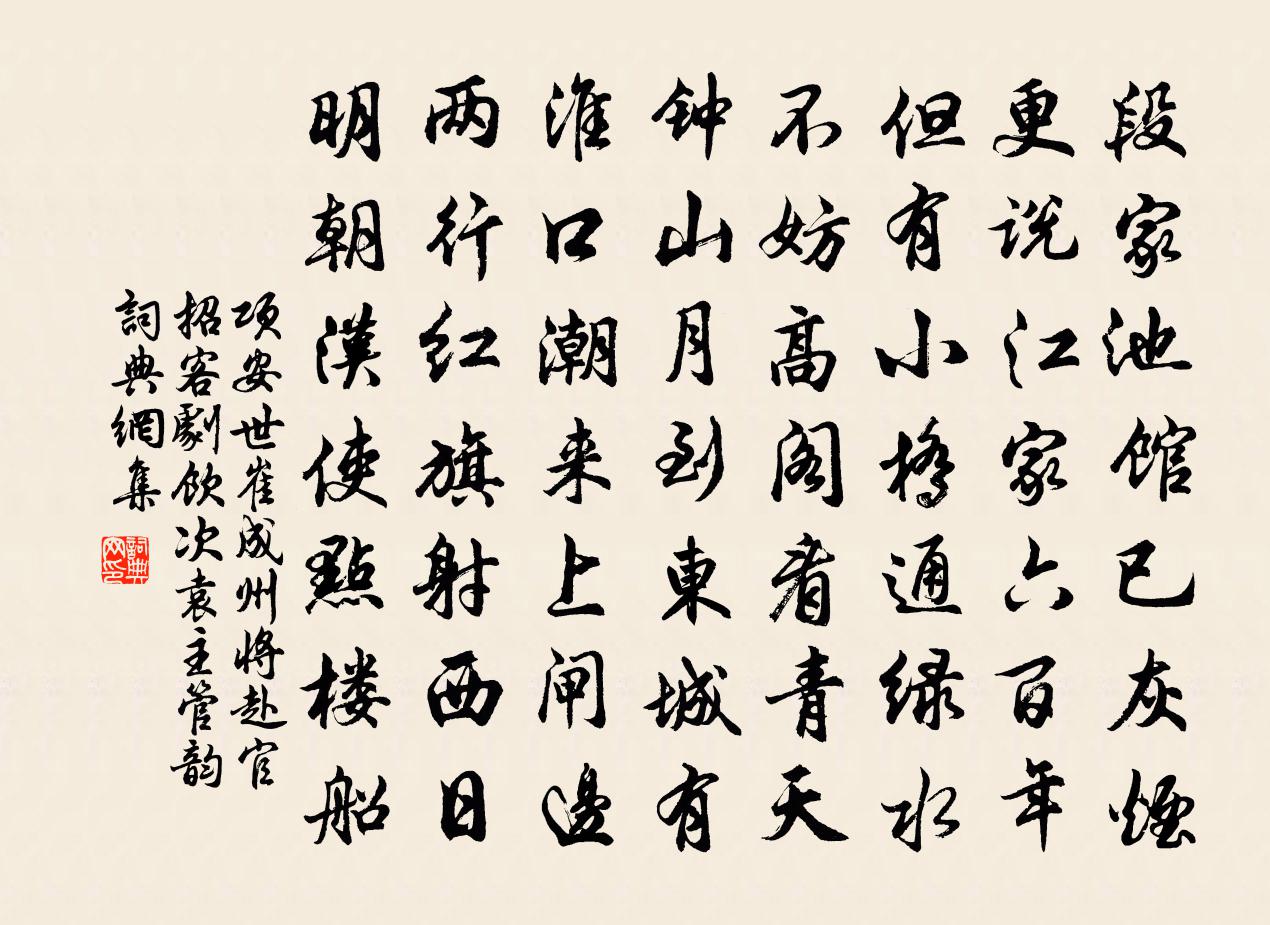 段家池馆已灰煙
更说江家六百年
但有小橋通緑水
不妨高阁看青天
钟山月到東城有
淮口潮来上闸邊
两行红旗射西日
明朝漢使點楼船
项安世崔成州將赴官
招客劇飲次袁主管韵
詞典網集
詞典网印